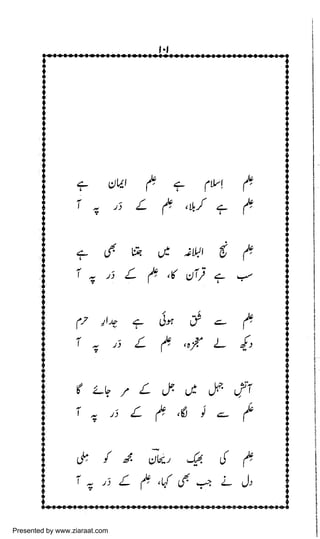 ۱۰۱
عِلم اِسلام ہے عِلم ایمان ہے
عِلم ہے کربلا، عِلم کے دَر پہ آ
عِلم نہج البلاغہ میں جتنا بھی ہے
سب ہے قرآن کا، عِلم کے دَر پہ آ
عِلم سے شق ہوئی ہے جدارِ حرم
دیکھ لے معجزہ، عِلم کے دَر پہ آ
آتشِ جہل میں جل کے مر جائے گا
علم سے لَو لگا، عِلم کے دَر پہ آ
عِلم کی بھیک ریحان مجھ کو مِلی
دل نے جب بھی کہا، عِلم کے دَر پہ آ
Presented by www.ziaraat.com